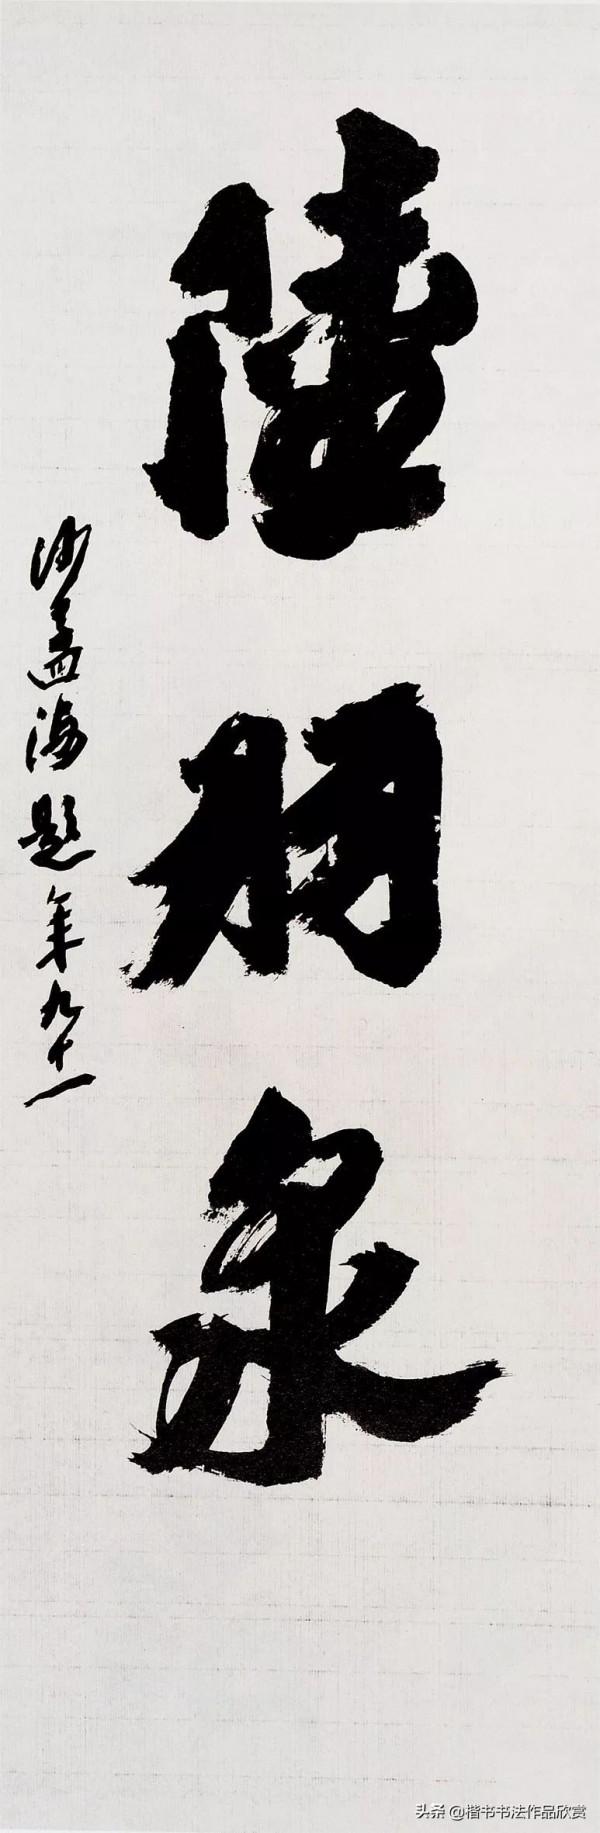 陸羽泉
沙孟海題年九十一
头条 @楷书书法作品欣赏